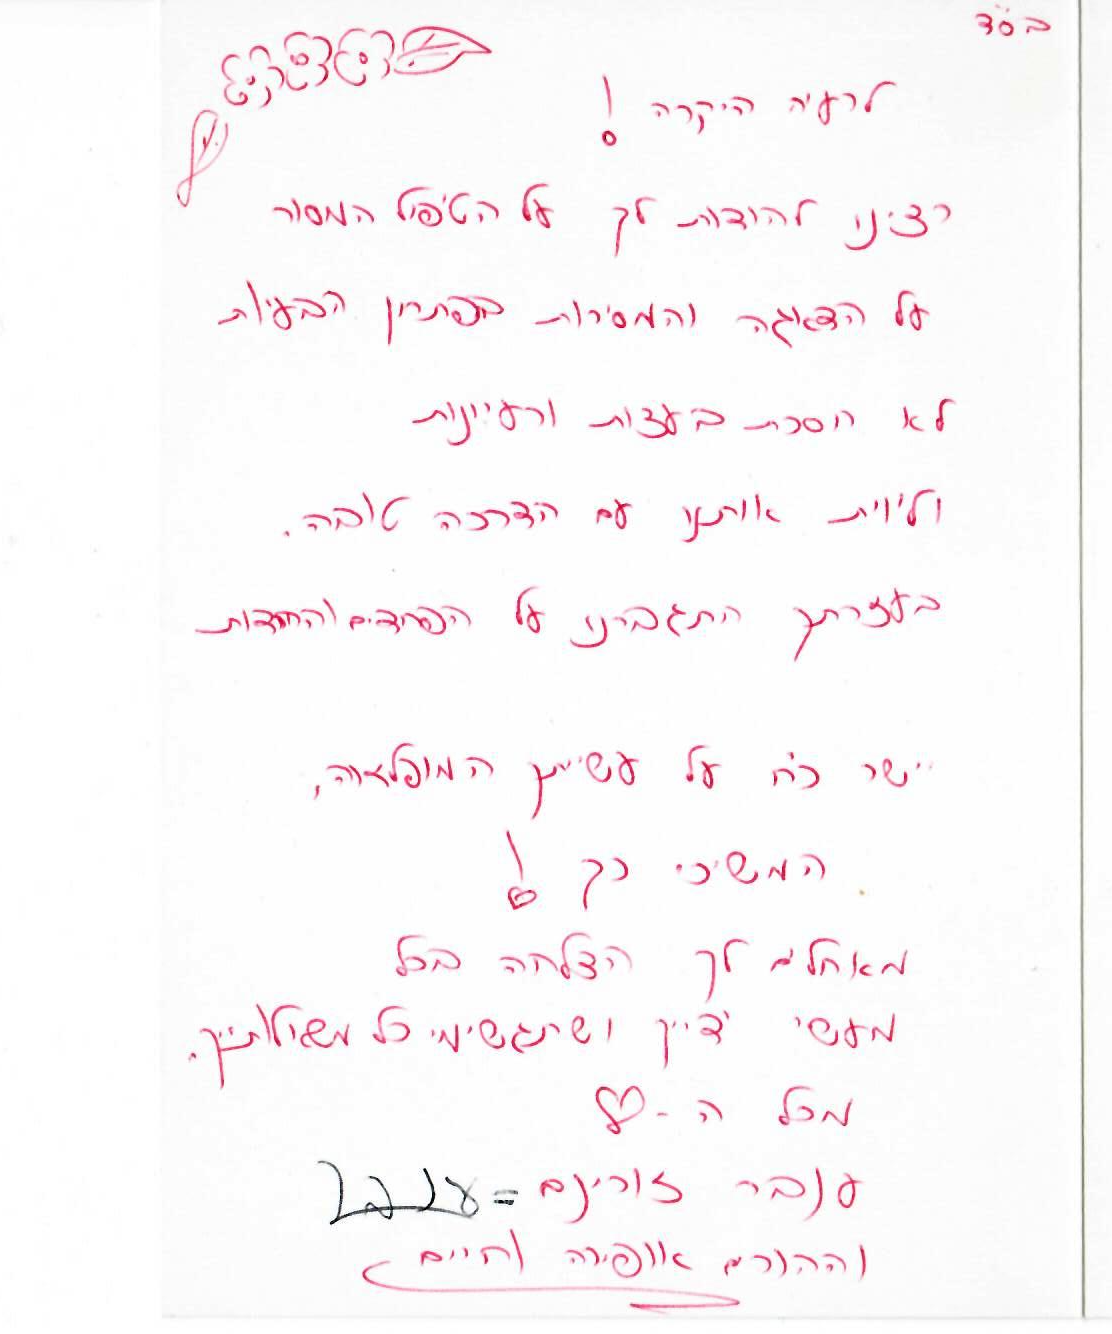 בס"ד
לרעיה היקרה!
רצינו להודות לך על הטיפול המסור
על הדאגה והמסירות בפתרון הבעיות
לא חסכת בעצות ורעיונות
ולווית אותנו עם הדרכה טובה.
בעזרתך התגברנו על הפחדים והחרדות
יישר כח על עשייתך המופלאה,
המשיכי כך!
מאחלים לך הצלחה בכל
מעשי ידייך ושתגשימי כל משאלותייך.
מכל ה-♡
ענבר זורינם = ענבר
וההורים אופירה וחיים